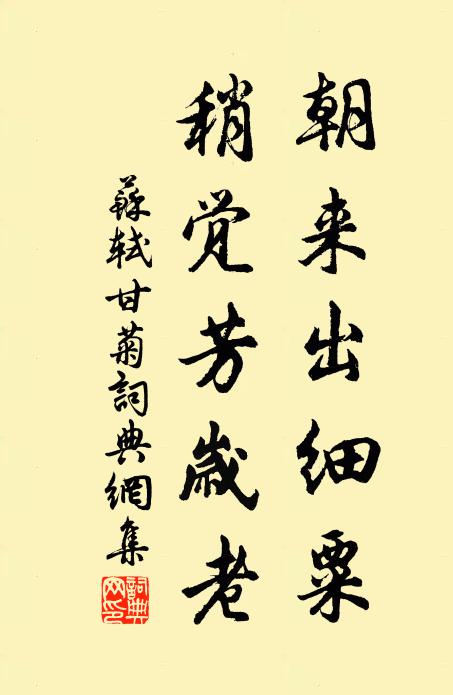 朝来出细粟
稍觉芳岁老
蘇轼甘菊詞典網集
詞典网印